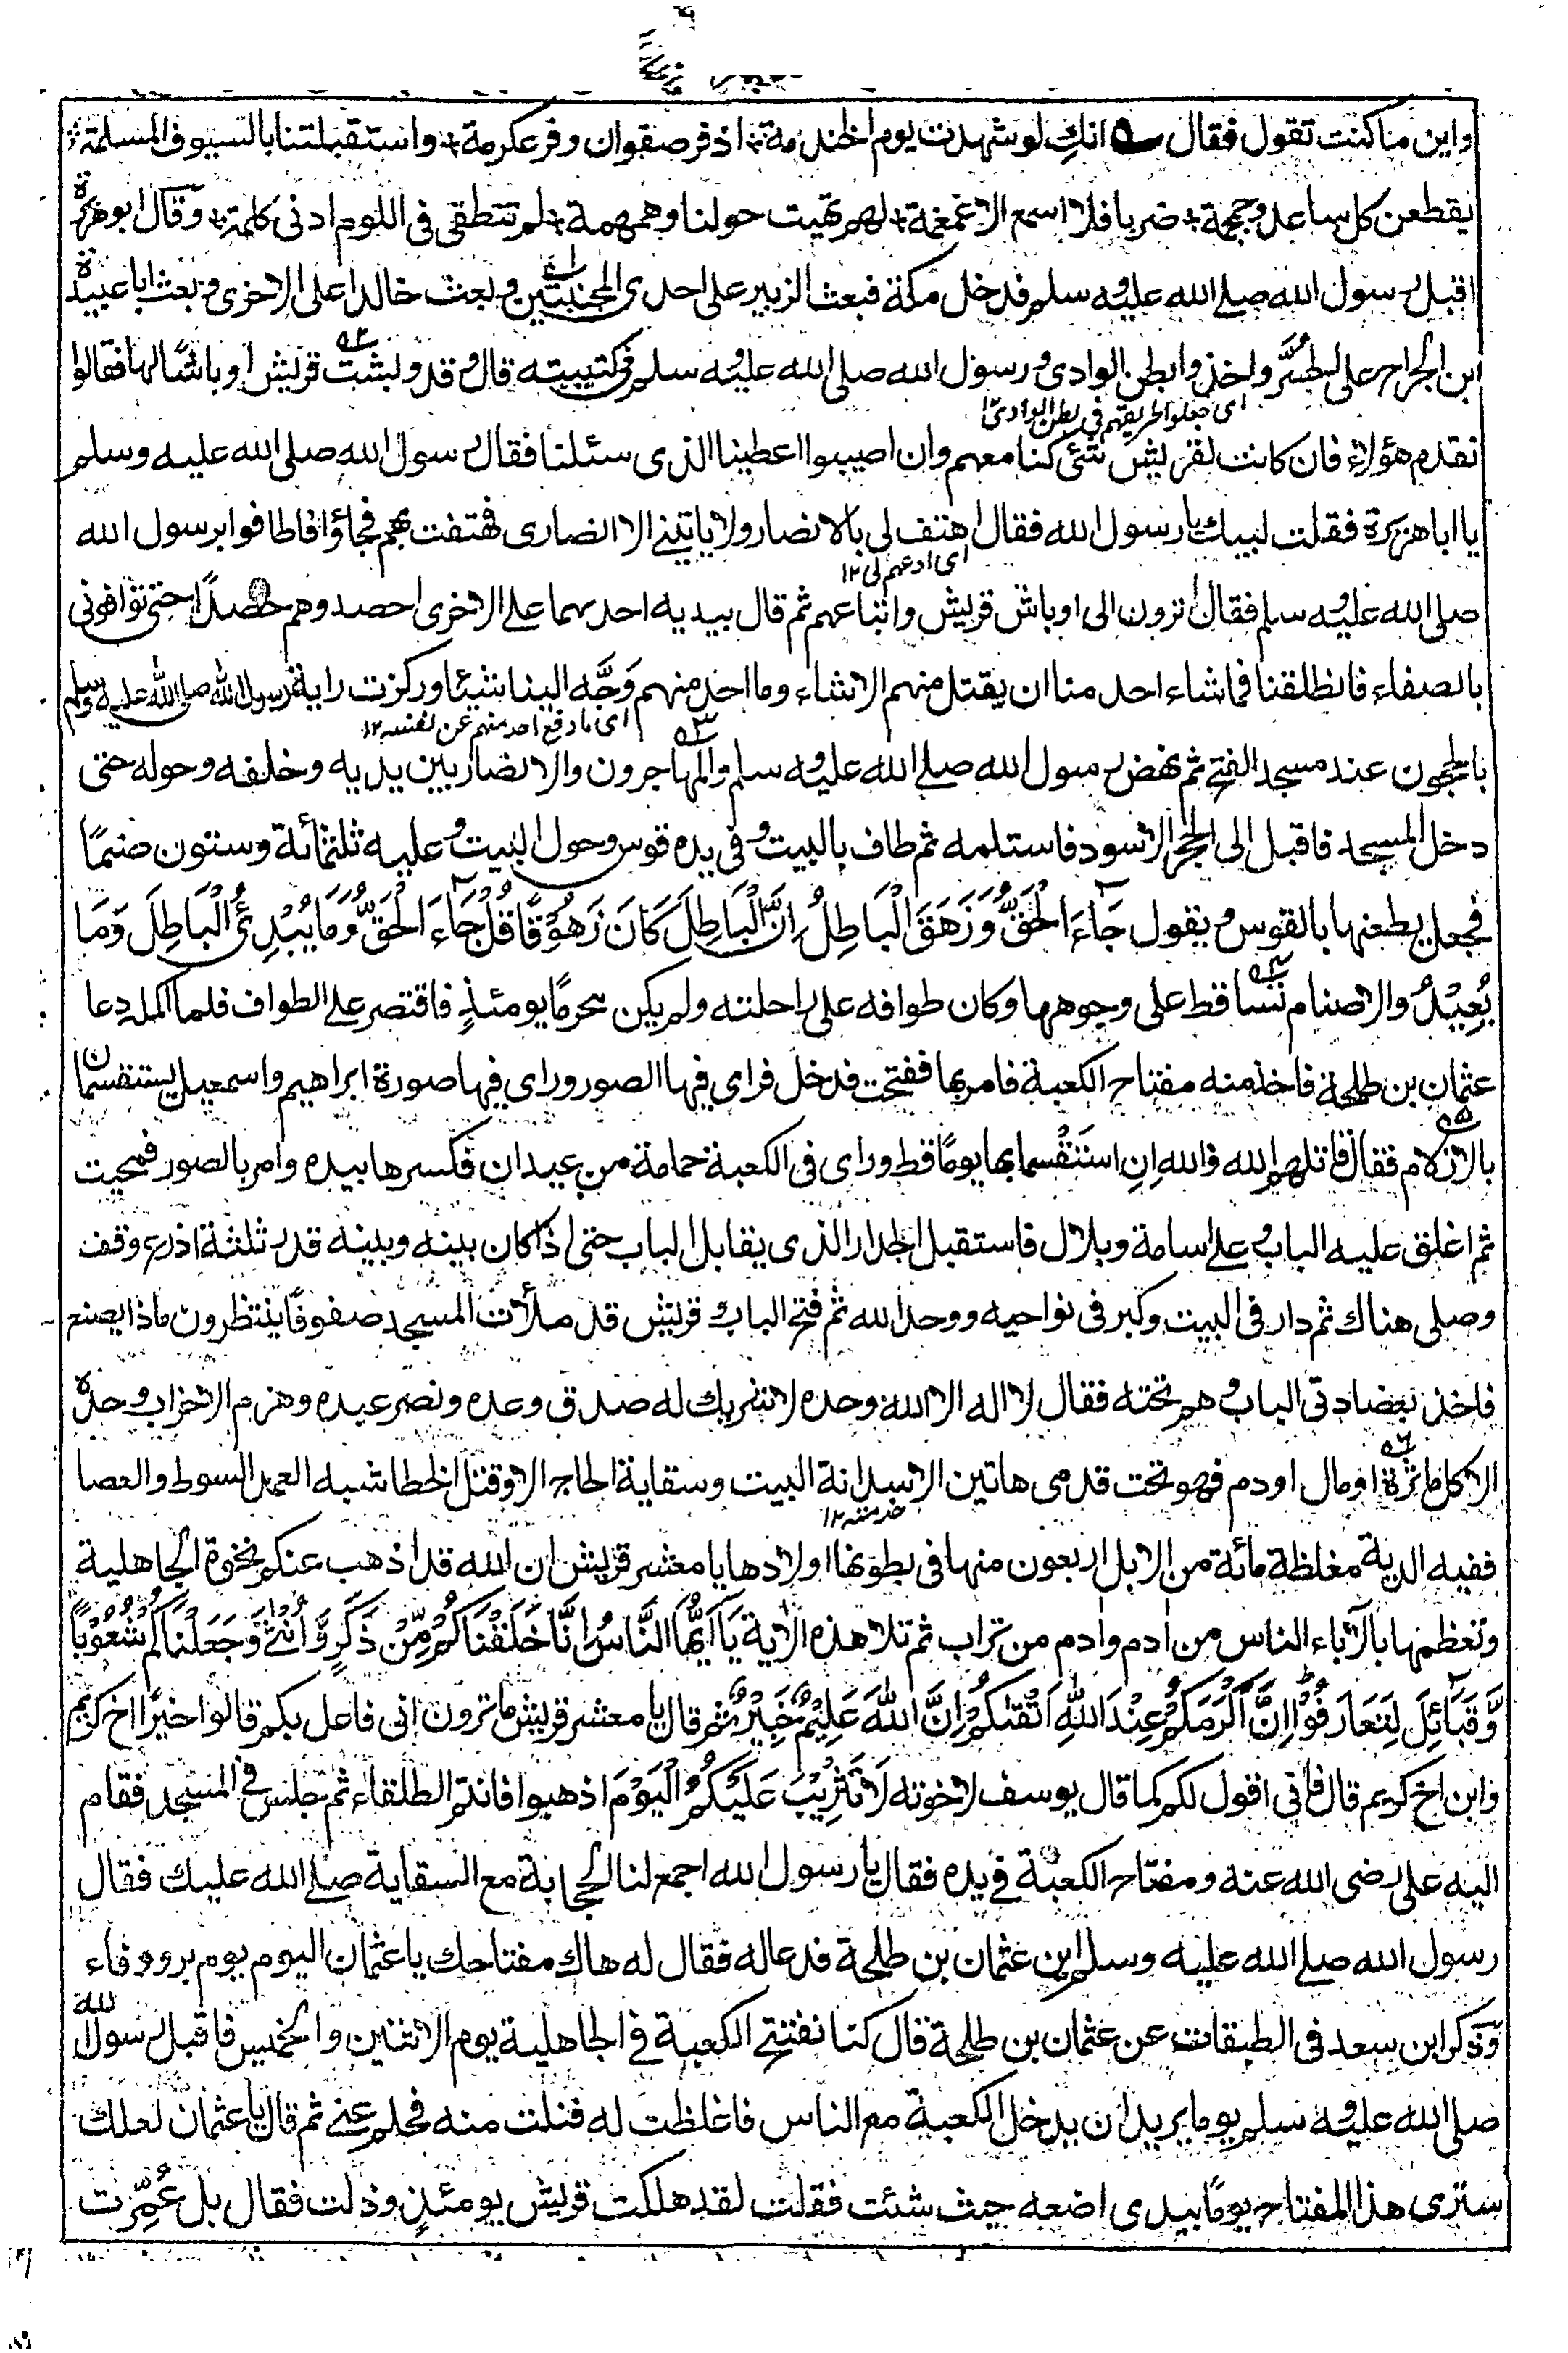 واين ما كنت تقول فقال انك لو شهدت يوم الخندمة اذ فر صفوان وفر عكرمة واستقبلتنا بالسيوف المسلمة
يقطعن كل ساعد وجمجمة ضربا فلا اسمع الا غمغمة لهم نهيت حولنا وهمهمة لم تنطقي في اللوم ادنى كلمة وقال ابو هريرة
اقبل رسول الله صلى الله عليه وسلم فدخل مكة فبعث الزبير على احدى المجنبتين وبعث خالدا على الاخرى وبعث ابا عبيدة
ابن الجراح على الحسر واخذوا بطن الوادى ورسول الله صلى الله عليه وسلم في كتيبته قال وقد وبشت قريش اوباشا لها فقالوا
اى جعلوا طريقهم في بطن الوادى ١٢
نقدم هؤلاء فان كانت لقريش شئ كنا معهم وان اصيبوا اعطينا الذى سئلنا فقال رسول الله صلى الله عليه وسلم
يا ابا هريرة فقلت لبيك يا رسول الله فقال اهتف لى بالانصار ولا ياتينى الا انصارى فهتفت بهم فجاؤا فاطافوا برسول الله
اى ادعهم لى ١٢
صلى الله عليه وسلم فقال اترون الى اوباش قريش واتباعهم ثم قال بيديه احدىهما على الاخرى احصدوهم حصدًا حتى توافونى
بالصفاء فانطلقنا فما شاء احد منا ان يقتل منهم الا شاء وما احد منهم وَجَّه الينا شيئا وركزت راية رسول الله صلى الله عليه وسلم
اى ما دفع احد منهم عن نفسه ١٢
بالحجون عند مسجد الفتح ثم نهض رسول الله صلى الله عليه وسلم والمهاجرون والانصار بين يديه وخلفه وحوله حتى
دخل المسجد فاقبل الى الحجر الاسود فاستلمه ثم طاف بالبيت و في يده قوس وحول البيت وعليه ثلثمائة وستون صنمًا
فجعل يطعنها بالقوس ويقول جَآءَ الْحَقُّ وَزَهَقَ الْبَاطِلُ اِنَّ الْبَاطِلَ كَانَ زَهُوْقًا قُلْ جَآءَ الْحَقُّ وَمَا يُبْدِئُ الْبَاطِلُ وَمَا
يُعِيْدُ والاصنام تتساقط على وجوهها وكان طوافه على راحلته ولم يكن محرمًا يومئذٍ فاقتصر على الطواف فلما اكمله دعا
عثمان بن طلحة فاخذ منه مفتاح الكعبة فامر بها ففتحت فدخل فراى فيها الصور وراى فيها صورة ابراهيم واسمعيل يستقسمان
بالازلام فقال قاتلهم الله والله اِنِ استَقْسما بها يومًا قط وراى في الكعبة حمامة من عيدان فكسرها بيده وامر بالصور فمحيت
ثم اغلق عليه الباب وعلى اسامة وبلال فاستقبل الجدار الذى يقابل الباب حتى اذا كان بينه وبينه قدر ثلثة اذرع وقف
وصلى هناك ثم دار فى البيت وكبر فى نواحيه ووحد الله ثم فتح الباب وقريش قد ملأت المسجد صفوفًا ينتظرون ماذا يصنع
فاخذ بعضادتى الباب وهم تحته فقال لا اله الا الله وحده لا شريك له صدق وعده ونصر عبده وهزم الاحزاب وحده
الا كل ماثرة او مال او دم فهو تحت قدمى هاتين الا سدانة البيت وسقاية الحاج الا وقتل الخطا شبه العمد السوط والعصا
خدمته ١٢
ففيه الدية مغلظة مائة من الابل اربعون منها فى بطونها اولادها يا معشر قريش ان الله قد اذهب عنكم نخوة الجاهلية
وتعظمها بالآباء الناس من ادم وادم من تراب ثم تلا هذه الاية يَآ اَيُّهَا النَّاسُ اِنَّا خَلَقْنَاكُمْ مِّنْ ذَكَرٍ وَّ اُنْثٰى وَجَعَلْنَاكُمْ شُعُوْبًا
وَّ قَبَآئِلَ لِتَعَارَفُوْا اِنَّ اَكْرَمَكُمْ عِنْدَ اللهِ اَتْقٰكُمْ اِنَّ اللهَ عَلِيْمٌ خَبِيْرٌ ثم قال يا معشر قريش ما ترون انى فاعل بكم قالوا خيرًا اخ كريم
وابن اخ كريم قال فانى اقول لكم كما قال يوسف لاخوته لَا تَثْرِيْبَ عَلَيْكُمُ الْيَوْمَ اذهبوا فانتم الطلقاء ثم جلس فى المسجد فقام
اليه على رضى الله عنه ومفتاح الكعبة فى يده فقال يا رسول الله اجمع لنا الحجابة مع السقاية صلى الله عليك فقال
رسول الله صلى الله عليه وسلم اين عثمان بن طلحة فدعا له فقال له هاك مفتاحك يا عثمان اليوم يوم بر ووفاء
وذكر ابن سعد فى الطبقات عن عثمان بن طلحة قال كنا نفتح الكعبة فى الجاهلية يوم الاثنين والخميس فاقبل رسول الله
صلى الله عليه وسلم يوما يريد ان يدخل الكعبة مع الناس فاغلظت له فنلت منه فحلم عنى ثم قال يا عثمان لعلك
سترى هذا المفتاح يومًا بيدى اضعه حيث شئت فقلت لقد هلكت قريش يومئذٍ وذلت فقال بل عُمِّرت